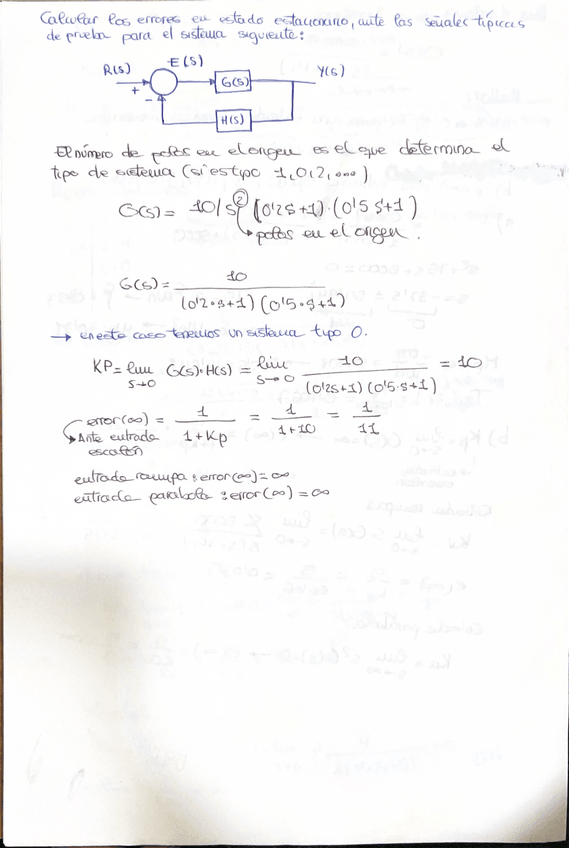 Calcular los errores en estado estacionario, ante las señales típicas
de prueba para el sistema siguiente:
R(s) + - E(s) G(s) Y(s)
H(s)
El número de polos en el origen es el que determina el
tipo de sistema (si es tipo 1,0,2,...)
G(s) = 10/s² (0'2s+1)·(0'5s+1)
↳ polos en el origen.
G(s) = 10 / (0'2·s+1)(0'5·s+1)
→ en este caso tenemos un sistema tipo 0.
KP = lim s→0 G(s)·H(s) = lim s→0 10 / (0'2s+1)(0'5·s+1) = 10
error(∞) = 1/(1+Kp) = 1/(1+10) = 1/11
↳ Ante entrada
escalón
entrada rampa : error(∞) = ∞
entrada parabola : error(∞) = ∞